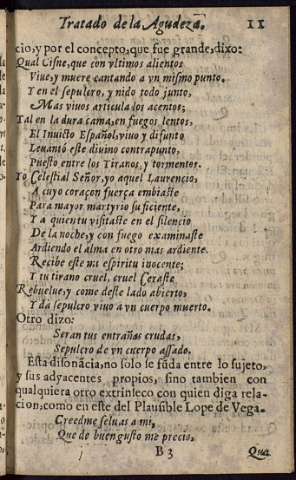 Tratado de la Agudeza. 11
cio, y por el concepto, que fue grande, dixo:
Qual Cisne, que con vltimos alientos
Viue, y muere cantando a vn mismo punto.
Y en el sepulcro, y nido todo junto,
Mas viuos articula los acentos;
Tal en la dura cama, en fuegos lentos,
El Inuicto Español, viuo y difunto
Leuantó este diuino contrapunto,
Puesto entre los Tiranos, y tormentos.
Yo Celestial Señor, yo aquel Laurencio,
A cuyo coraçon fuerça embiaste
Para mayor martyrio suficiente,
Y a quien tu visitaste en el silencio
De la noche, y con fuego examinaste
Ardiendo el alma en otro mas ardiente.
Recibe este mi espiritu inocente;
Y tu tirano cruel, cruel Ceraste
Rebuelue, y come deste lado abierto,
Y da sepulcro viuo a vn cuerpo muerto.
Otro dizo:
Seran tus entrañas crudas,
Sepulcro de vn cuerpo assado.
Esta disonãcia, no solo se fũda entre lo sujeto,
y sus adyacentes propios, sino tambien con
qualquiera otro extrinseco con quien diga rela-
cion, como en este del Plausible Lope de Vega.
Creedme seluas a mi,
Que de buen gusto me precio,
B 3 Qua